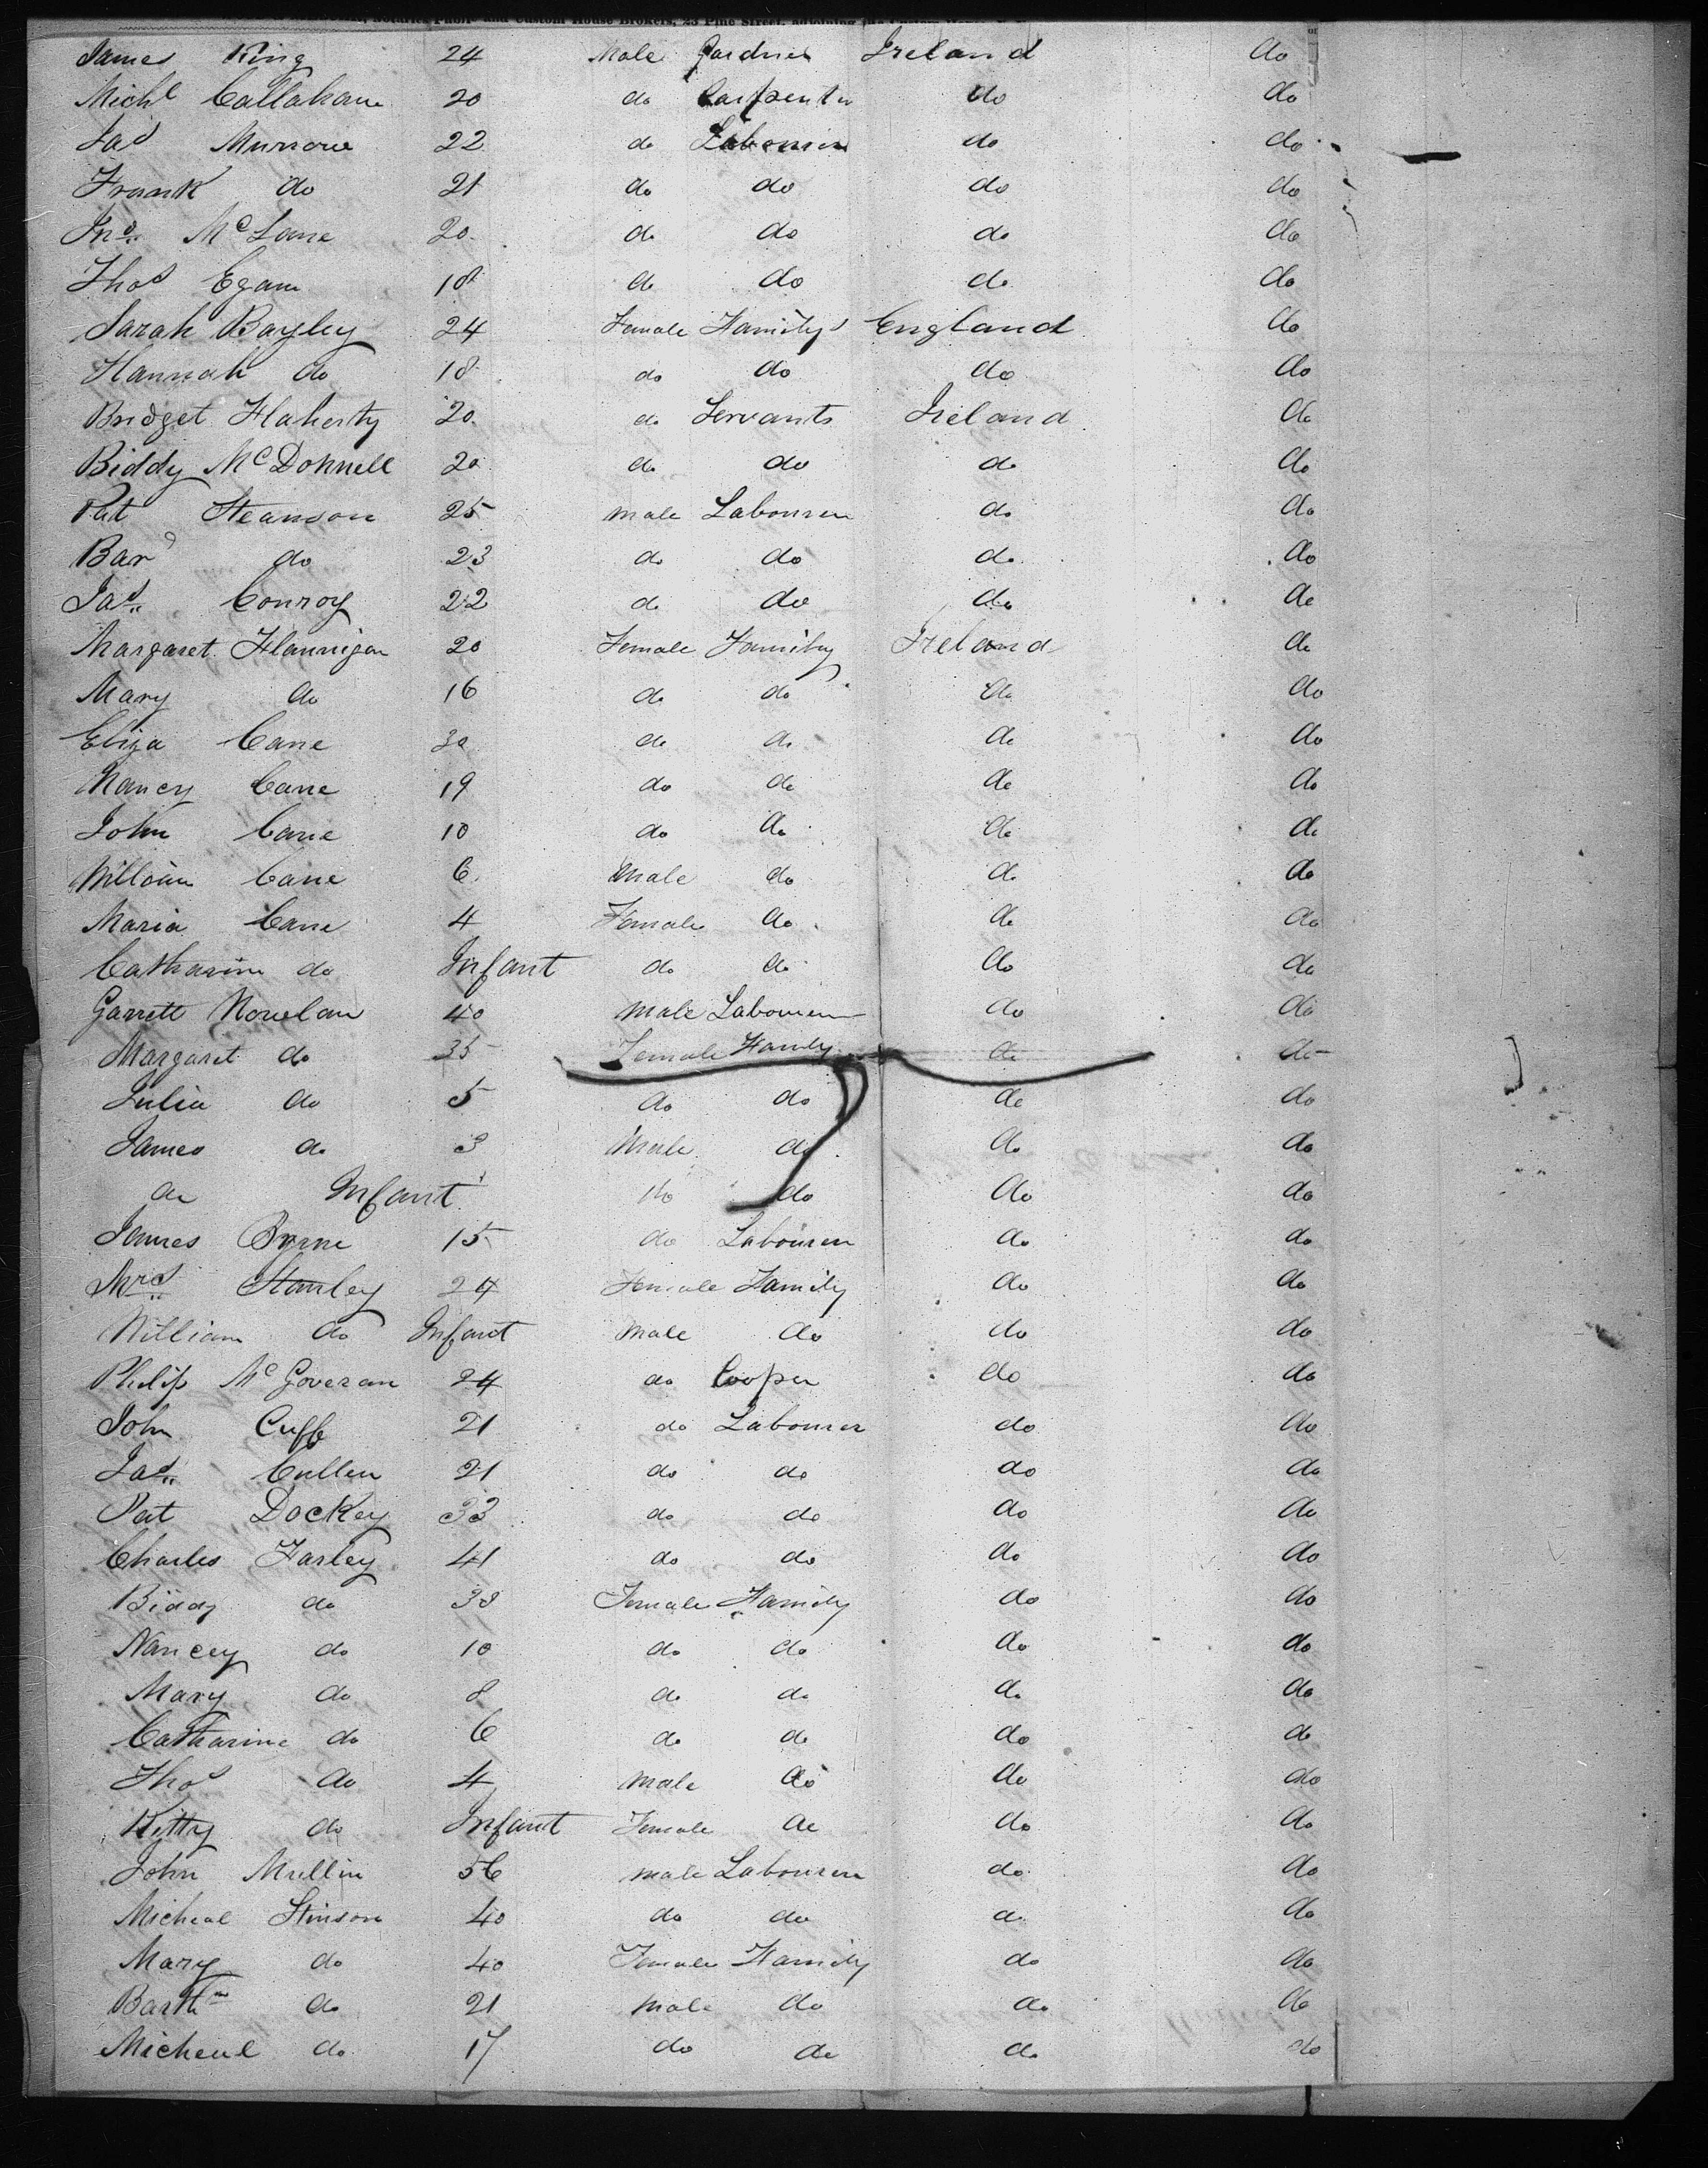 Notaries Public and Custom House Brokers, 23 Pine Street, adjoining the Custom House
James King 24 Male Gardner Ireland do
Michl Callahan 20 do Carpenter do do
Jas Murrow 22 do Labourer do do
Frank do 21 do do do do
Jno McLane 20 do do do do
Thos Egan 18 do do do do
Sarah Bayley 24 Female Family England do
Hannah do 18 do do do do
Bridget Flaherty 20 do Servants Ireland do
Biddy McDonnell 20 do do do do
Pat Steanson 25 Male Labourer do do
Bar do 23 do do do do
Jas Conroy 22 do do do do
Margaret Flannigan 20 Female Family Ireland do
Mary do 16 do do do do
Eliza Cane 30 do do do do
Nancy Cane 19 do do do do
John Cane 10 do do do do
William Cane 6 Male do do do
Maria Cane 4 Female do do do
Catharine do Infant do do do do
Garrett Nowlan 40 Male Labourer do do
Margaret do 35 Female Family do do
Julia do 5 do do do do
James do 3 Male do do do
do Infant do do do do
James Byrne 15 do Labourer do do
Mrs Stanley 24 Female Family do do
William do Infant Male do do do
Philip McGoveran 24 do Cooper do do
John Cuff 21 do Labourer do do
Jas Cullen 21 do do do do
Pat Dockey 33 do do do do
Charles Farley 41 do do do do
Biddy do 38 Female Family do do
Nancey do 10 do do do do
Mary do 8 do do do do
Catharine do 6 do do do do
Thos do 4 Male do do do
Kitty do Infant Female do do do
John Mullin 56 Male Labourer do do
Micheal Stinson 40 do do do do
Mary do 40 Female Family do do
Barthw do 21 Male do do do
Micheal do 17 do do do do